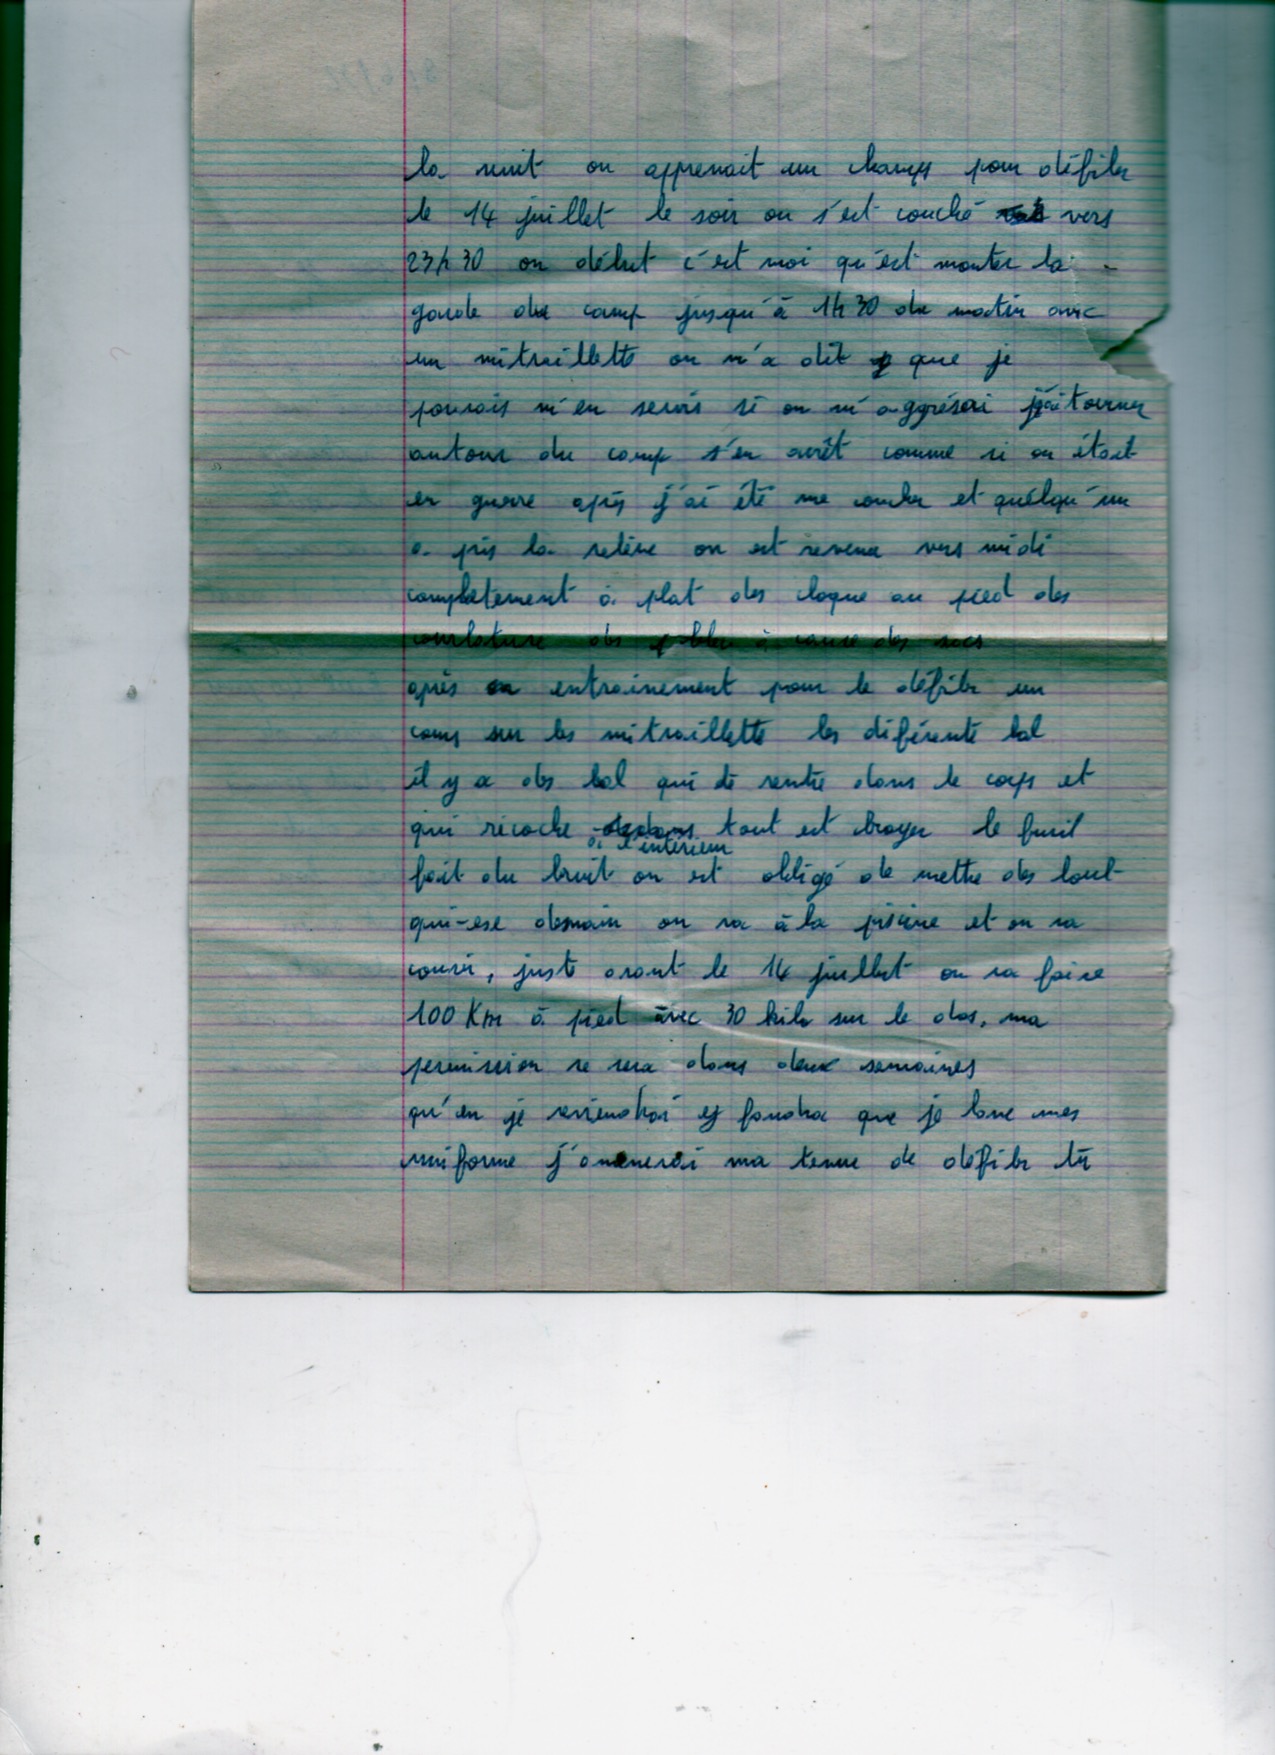 la nuit on apprenait un champs pour défiler
le 14 juillet le soir on s'est couché vers
23h30 on début c'est moi qu'est monter la
garde du camp jusqu'à 1h30 du matin avec
un mitraillette on m'a dit que je
pouvais m'en servir si on m'aggrésai j'ai tourner
autour du camp s'en arrêt comme si on était
en guerre après j'ai été me coucher et quelqu'un
a pris la relève on est revenu vers midi
completement à plat des cloque au pied des
courbature des à cause des sacs
après entrainement pour le défiler un
cours sur les mitraillette les diférente bal
il y a des bal qui te rentre dans le corps et
qui ricoche à l'intérieur tout est broyer le fusil
fait du bruit on est obligé de mettre des boul-
qui-ese demain on va à la piscine et on va
courir, juste avant le 14 juillet on va faire
100 Km à pied avec 30 kilo sur le dos, ma
permission se sera dans deux semaines
qu'en je reviendrai y faudra que je lave mes
uniforme j'amenerai ma tenue de défiler tu